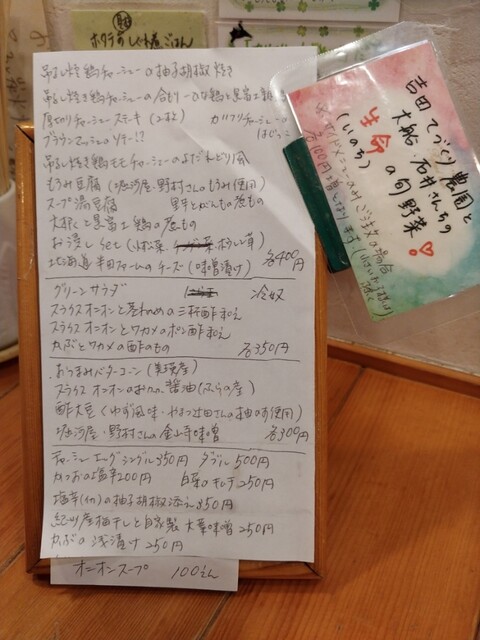 ホタテのしぐれ煮ごはん
吊るし焼き鶏チャーシューの柚子胡椒焼き
吊るし焼き鶏チャーシューの
厚切りチャーシューステーキ (2枚) カリフリチャーシューの
ブラウンマッシュのソテー!? はじっこ
吊るし焼き鶏モモチャーシューのよだれどり風
もろみ豆腐 (堀河屋・野村さんのもろみ使用)
スープ湯豆腐
大根と黒富士鶏の煮もの
お漬しset
北海道半田ファームのチーズ (味噌漬け) 各400円
グリーンサラダ 冷奴
スライスオニオンと茎わかめの三杯酢和え
スライスオニオンとワカメのポン酢和え
かぶとワカメの酢のもの 各350円
あらまみバターコーン (真狩産)
スライスオニオンのおかか醤油 (ふらの産)
酢大豆 (ゆず風味・やまつ辻田さんの柚のす使用)
堀河屋・野村さんの金山寺味噌 各300円
チャーシューエッグ シングル350円 ダブル500円
かつおの塩辛200円 白菜のキムチ250円
塩辛(イカ)の柚子胡椒添え350円
紀州産梅干しと自家製大葉味噌250円
かぶの浅漬け250円
オニオンスープ 100えん
吉田てづくり農園と
大船 石井さんちの
生命 の旬野菜♡
(いのち)